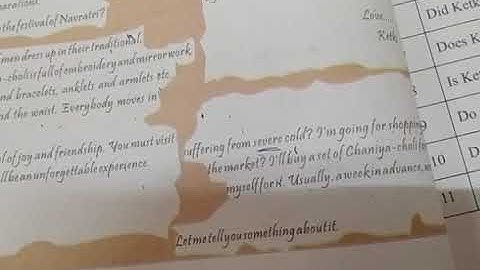 the festival of Navratri?
men dress up in their traditional
-choli is full of embroidery and mirror work
nd bracelets, anklets and armlets etc.
nd the waist. Everybody moves in
l of joy and friendship. You must visit
ll be an unforgettable experience.
Love....
Ketk
suffering from severe cold? I'm going for shopping
the market? I'll buy a set of Chaniya-choli for
myself for it. Usually, a week in advance, w
Let me tell you something about it.
Did Ketk
Does K
Is Ket
Do
10
11